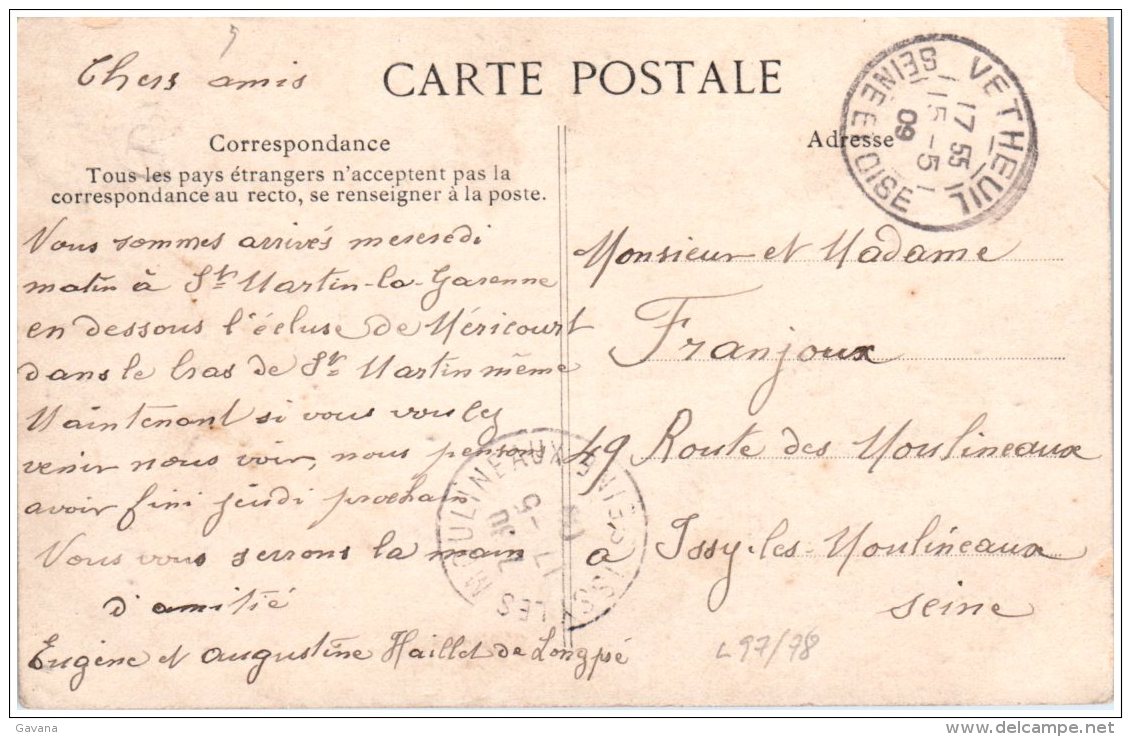 Chers amis
CARTE POSTALE
Correspondance
Tous les pays étrangers n'acceptent pas la
correspondance au recto, se renseigner à la poste.
Nous sommes arrivés meseredi
matin à St Martin-la-Garenne
en dessous l'écluse de Méricourt
dans le bras de St Martin même
Maintenant si vous voulez
venir nous voir, nous pensons
avoir fini jeudi prochain
Nous vous serrons la main
d'amitié
Eugène et Augustine Haillet de Longpé
Adresse
VETHEUIL
SEINE ET OISE
17 55
15 - 5
09
Monsieur et Madame
Franjoux
49 Route des Moulineaux
a Issy-les-Moulineaux
Seine
ISSY LES MOULINEAUX SEINE
7 30
17 - 5
97/98
Gavana
www.delcampe.net